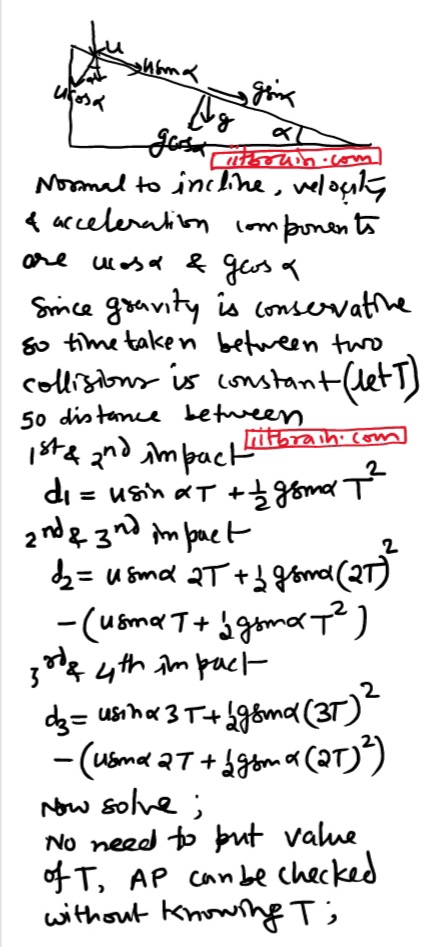 u
usinα
ucosα
α
gsinα
g
gcosα
α
iitbrain.com
Normal to incline, velocity
& acceleration components
are ucosα & gcosα
Since gravity is conservative
so time taken between two
collisions is constant (let T)
so distance between
iitbrain.com
1st & 2nd impact
d₁ = usinαT + ½ gsinα T²
2nd & 3rd impact
d₂ = usinα 2T + ½ gsinα (2T)²
- (usinα T + ½ gsinα T²)
3rd & 4th impact
d₃ = usinα 3T + ½ gsinα (3T)²
- (usinα 2T + ½ gsinα (2T)²)
Now solve ;
No need to put value
of T, AP can be checked
without knowing T ;